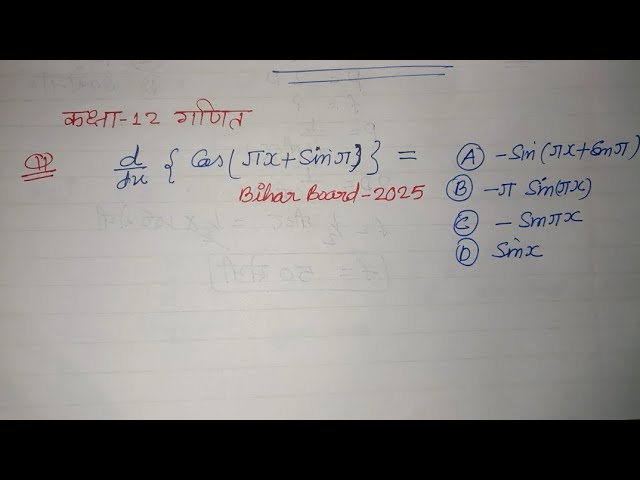 कक्षा-12 गणित
Q d/dx { Cos(πx + Sinπ) } =
Bihar Board-2025
A -Sin(πx + Sinπ)
B -π Sin(πx)
C - Sinπx
D Sinx